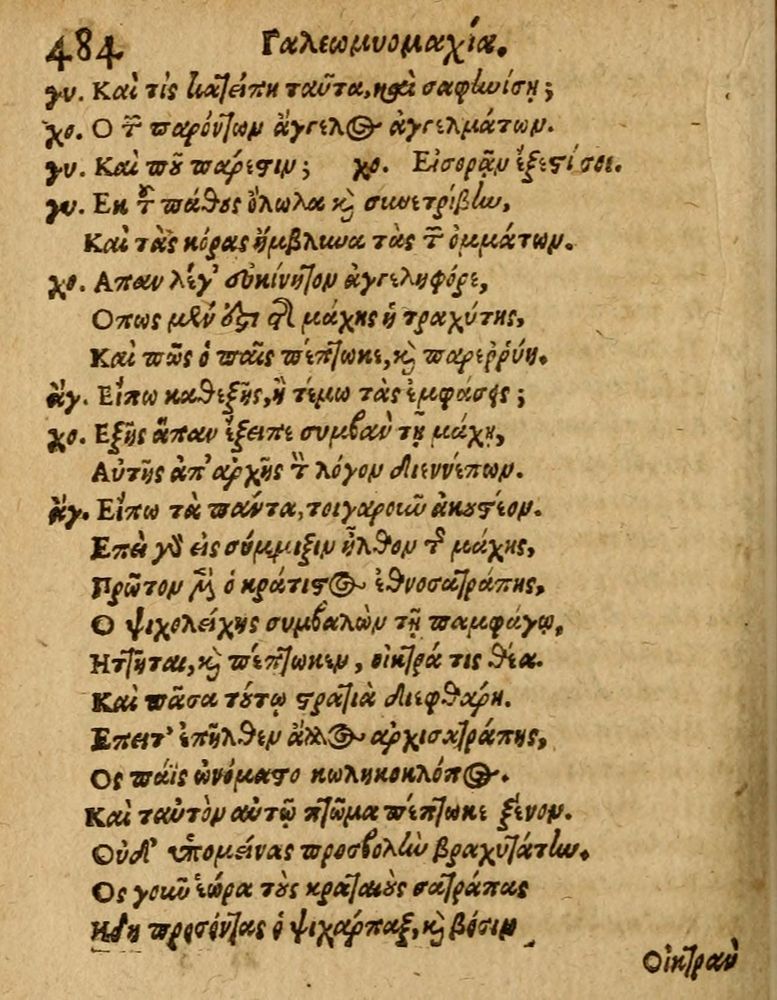 484 Γαλεωμυομαχία.
γυ. Καὶ τίς κατείπῃ ταῦτα, καὶ σαφηνίσῃ;
χο. Ο τῶν παρόντων ἄγγελος ἀγγελμάτων.
γυ. Καὶ ποῦ πάρεστιν; χο. Εἰσορᾷν ἔξεστί σοι.
γυ. Εκ τοῦ πάθους ὄλωλα καὶ συνετρίβην,
Καὶ τὰς κόρας ἤμβλυνα τὰς τῶν ὀμμάτων.
χο. Απαν λέγ' συκίνητον ἀγγεληφόρε,
Οπως μὲν ἐστι τῆς μάχης ἡ τραχύτης,
Καὶ πῶς ὁ παῖς πέπτωκε, καὶ παρεῤῥύη.
ἄγ. Εἴπω καθεξῆς, ἢ τέμω τὰς ἐμφάσεις;
χο. Εξῆς ἅπαν ἔξειπε συμβὰν τῇ μάχῃ,
Αὐτῆς ἀπ' ἀρχῆς τὸν λόγον διεννέπων.
ἄγ. Εἴπω τὰ πάντα, τοιγαροῦν ἀκουστέον.
Επεὶ γὰρ εἰς σύμμιξιν ἦλθον τῆς μάχης,
Πρῶτον μὲν ὁ κράτιστος ἐθνοσατράπης,
Ο ψιχολείχης συμβαλὼν τῇ παμφάγῳ,
Ητῆται, καὶ πέπτωκεν, οἰκτρά τις θέα.
Καὶ πᾶσα τούτῳ στρατιὰ διεφθάρη.
Επειτ' ἐπῆλθεν ἄλλος ἀρχισατράπης,
Ος πάϊς ὠνόμαστο κωληκοκλόπος.
Καὶ ταὐτὸν αὐτῷ πτῶμα πέπτωκε ξένον.
Οὐδ' ὑπομείνας προσβολὴν βραχυτάτην.
Ος γοῦν ἑώρα τοὺς κραταιοὺς σατράπας
Ηδη προσόντας ὁ ψιχάρπαξ, καὶ βόσιν
Οἰκτρὰν